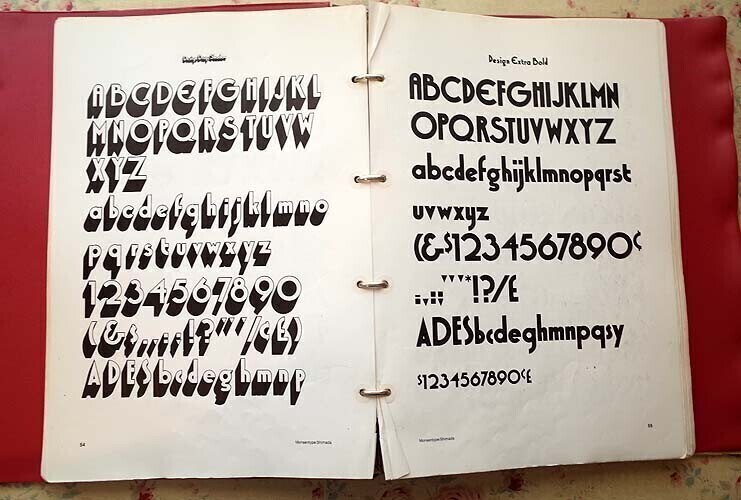 ABCDEFGHIJKL
MNOPQRSTUVW
XYZ
abcdefghijklmno
pqrstuvwxyz
1234567890
ADESbcdeghmnp
54
Monsentype:Shimada
Design Extra Bold
ABCDEFGHIJKLMN
OPQRSTUVWXYZ
abcdefghijklmnopqrst
uvwxyz
(&$1234567890¢
*!?/£
ADESbcdeghmnpqsy
$1234567890¢£
55
Monsentype:Shimada